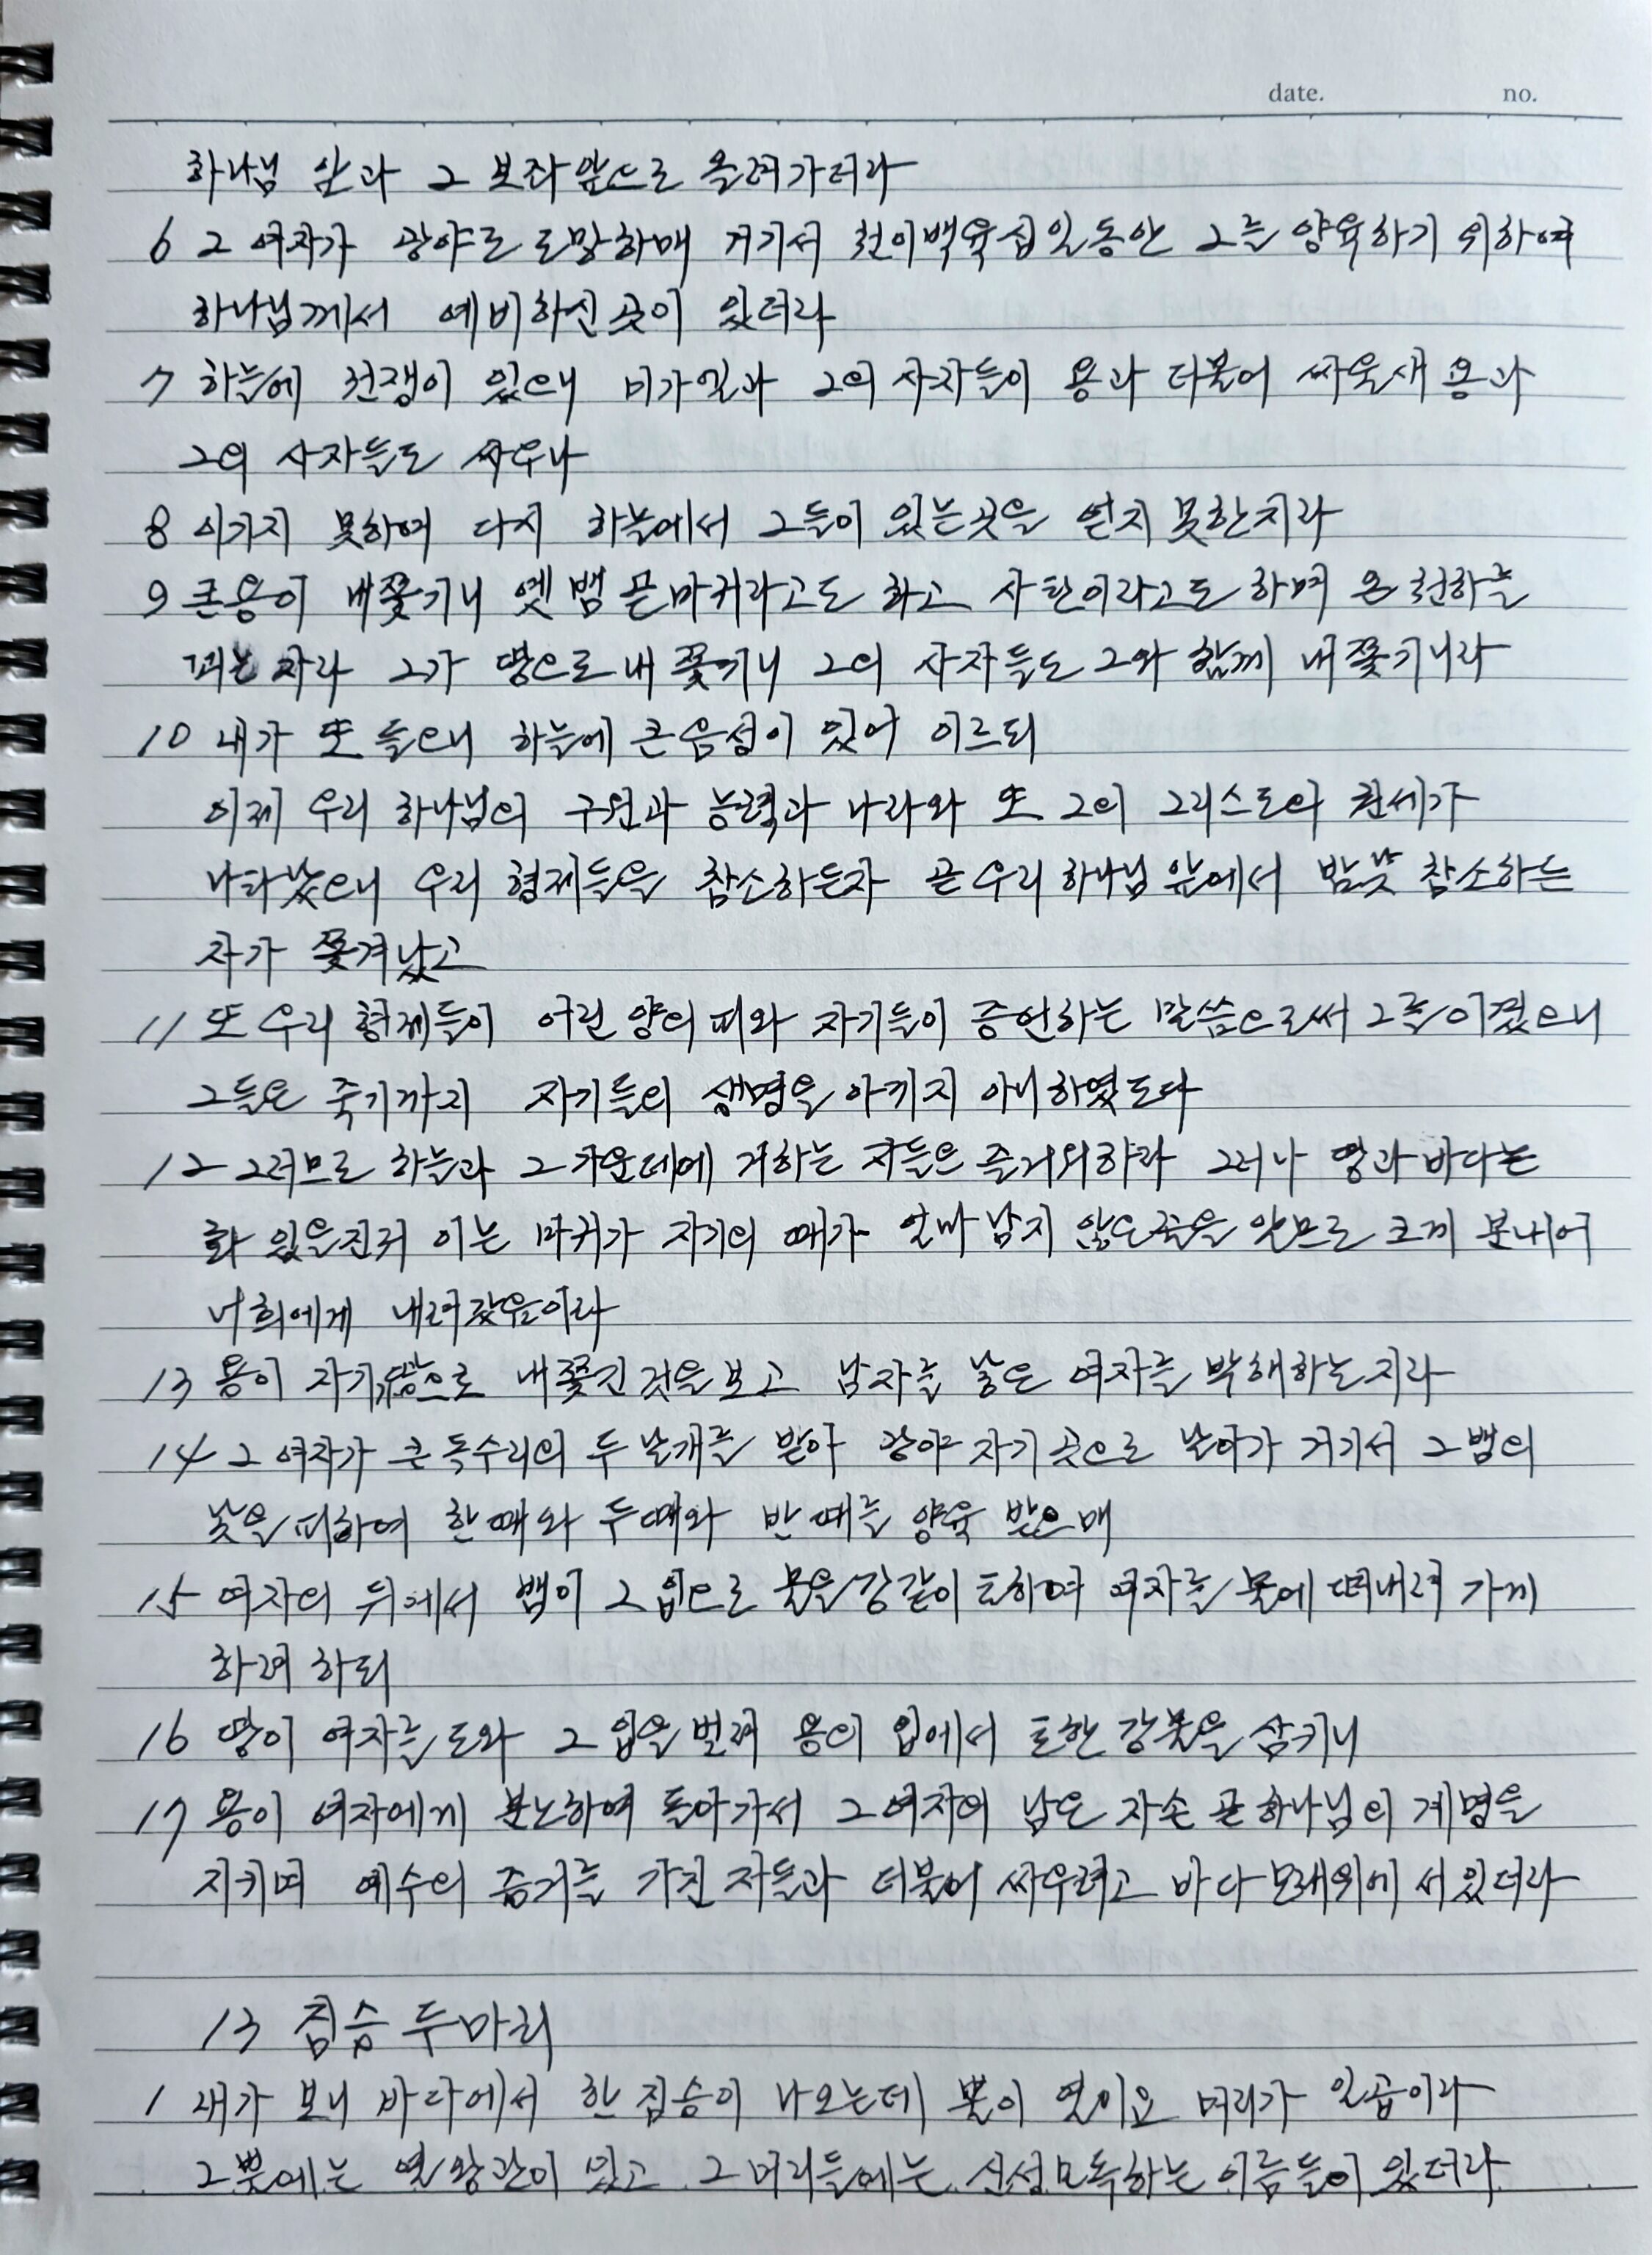 date. no.
하나님 앞과 그 보좌 앞으로 올려가더라
6 그 여자가 광야로 도망하매 거기서 천이백육십일 동안 그를 양육하기 위하여
하나님께서 예비하신 곳이 있더라
7 하늘에 전쟁이 있으니 미가엘과 그의 사자들이 용과 더불어 싸울새 용과
그의 사자들도 싸우나
8 이기지 못하여 다시 하늘에서 그들이 있는곳을 얻지 못한지라
9 큰용이 내쫓기니 옛 뱀 곧 마귀라고도 하고 사탄이라고도 하며 온 천하를
꾀는 자라 그가 땅으로 내쫓기니 그의 사자들도 그와 함께 내쫓기니라
10 내가 또 들으니 하늘에 큰 음성이 있어 이르되
이제 우리 하나님의 구원과 능력과 나라와 또 그의 그리스도의 권세가
나타났으니 우리 형제들을 참소하든자 곧 우리 하나님 앞에서 밤낮 참소하는
자가 쫓겨났고
11 또 우리 형제들이 어린 양의 피와 자기들이 증언하는 말씀으로써 그를 이겼으니
그들은 죽기까지 자기들의 생명을 아끼지 아니하였도다
12 그러므로 하늘과 그 가운데에 거하는 자들은 즐거워하라 그러나 땅과 바다는
화 있을진저 이는 마귀가 자기의 때가 얼마 남지 않은줄을 앎므로 크게 분내어
너희에게 내려갔음이라
13 용이 자기가 땅으로 내쫓긴 것을 보고 남자를 낳은 여자를 박해하는지라
14 그 여자가 큰 독수리의 두 날개를 받아 광야 자기 곳으로 날아가 거기서 그 뱀의
낯을 피하여 한 때와 두 때와 반 때를 양육 받으매
15 여자의 뒤에서 뱀이 그 입으로 물을 강같이 토하여 여자를 물에 떠내려 가게
하려 하되
16 땅이 여자를 도와 그 입을 벌려 용의 입에서 토한 강물을 삼키니
17 용이 여자에게 분노하여 돌아가서 그 여자의 남은 자손 곧 하나님의 계명을
지키며 예수의 증거를 가진 자들과 더불어 싸우려고 바다 모래위에 서있더라
13 짐승 두마리
1 내가 보니 바다에서 한 짐승이 나오는데 뿔이 열이요 머리가 일곱이라
그 뿔에는 열 왕관이 있고 그 머리들에는 신성모독하는 이름들이 있더라